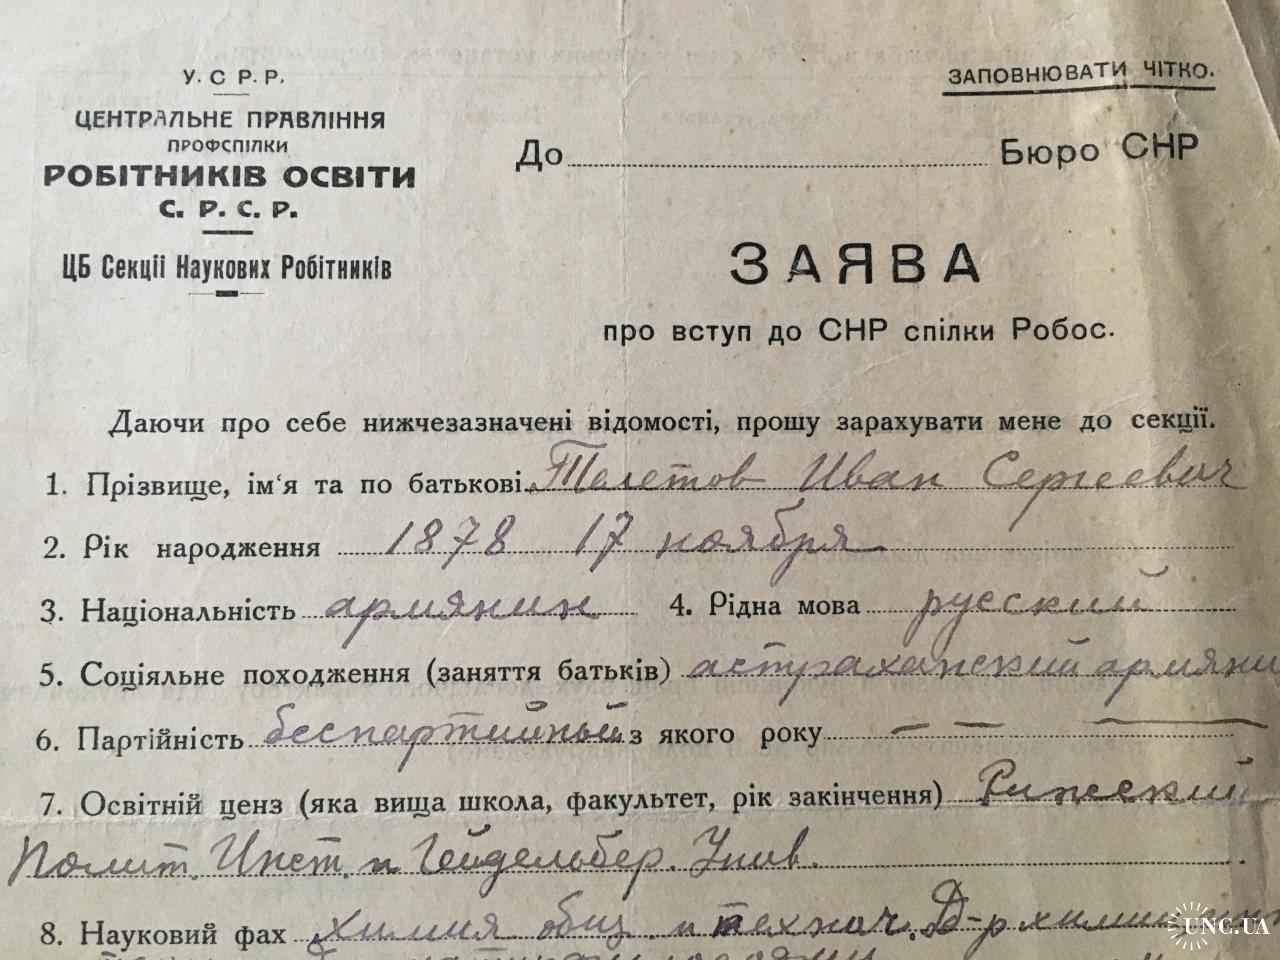 У. С Р. Р.
ЦЕНТРАЛЬНЕ ПРАВЛІННЯ
ПРОФСПІЛКИ
РОБІТНИКІВ ОСВІТИ
С. Р. С. Р.
ЦБ Секції Наукових Робітників
ЗАПОВНЮВАТИ ЧІТКО.
До Бюро СНР
ЗАЯВА
про вступ до СНР спілки Робос.
Даючи про себе нижчезазначені відомості, прошу зарахувати мене до секції.
1. Прізвище, ім'я та по батькові Телетов Иван Сергеевич
2. Рік народження 1878 17 ноября
3. Національність армянин 4. Рідна мова русский
5. Соціяльне походження (заняття батьків) астраханский армяни
6. Партійність беспартийный з якого року — — —
7. Освітній ценз (яка вища школа, факультет, рік закінчення) Рижский
Полит. Инст. и Гейдельбер. Унив.
8. Науковий фах химия общ. и технич. Д-р химии
UNC.UA